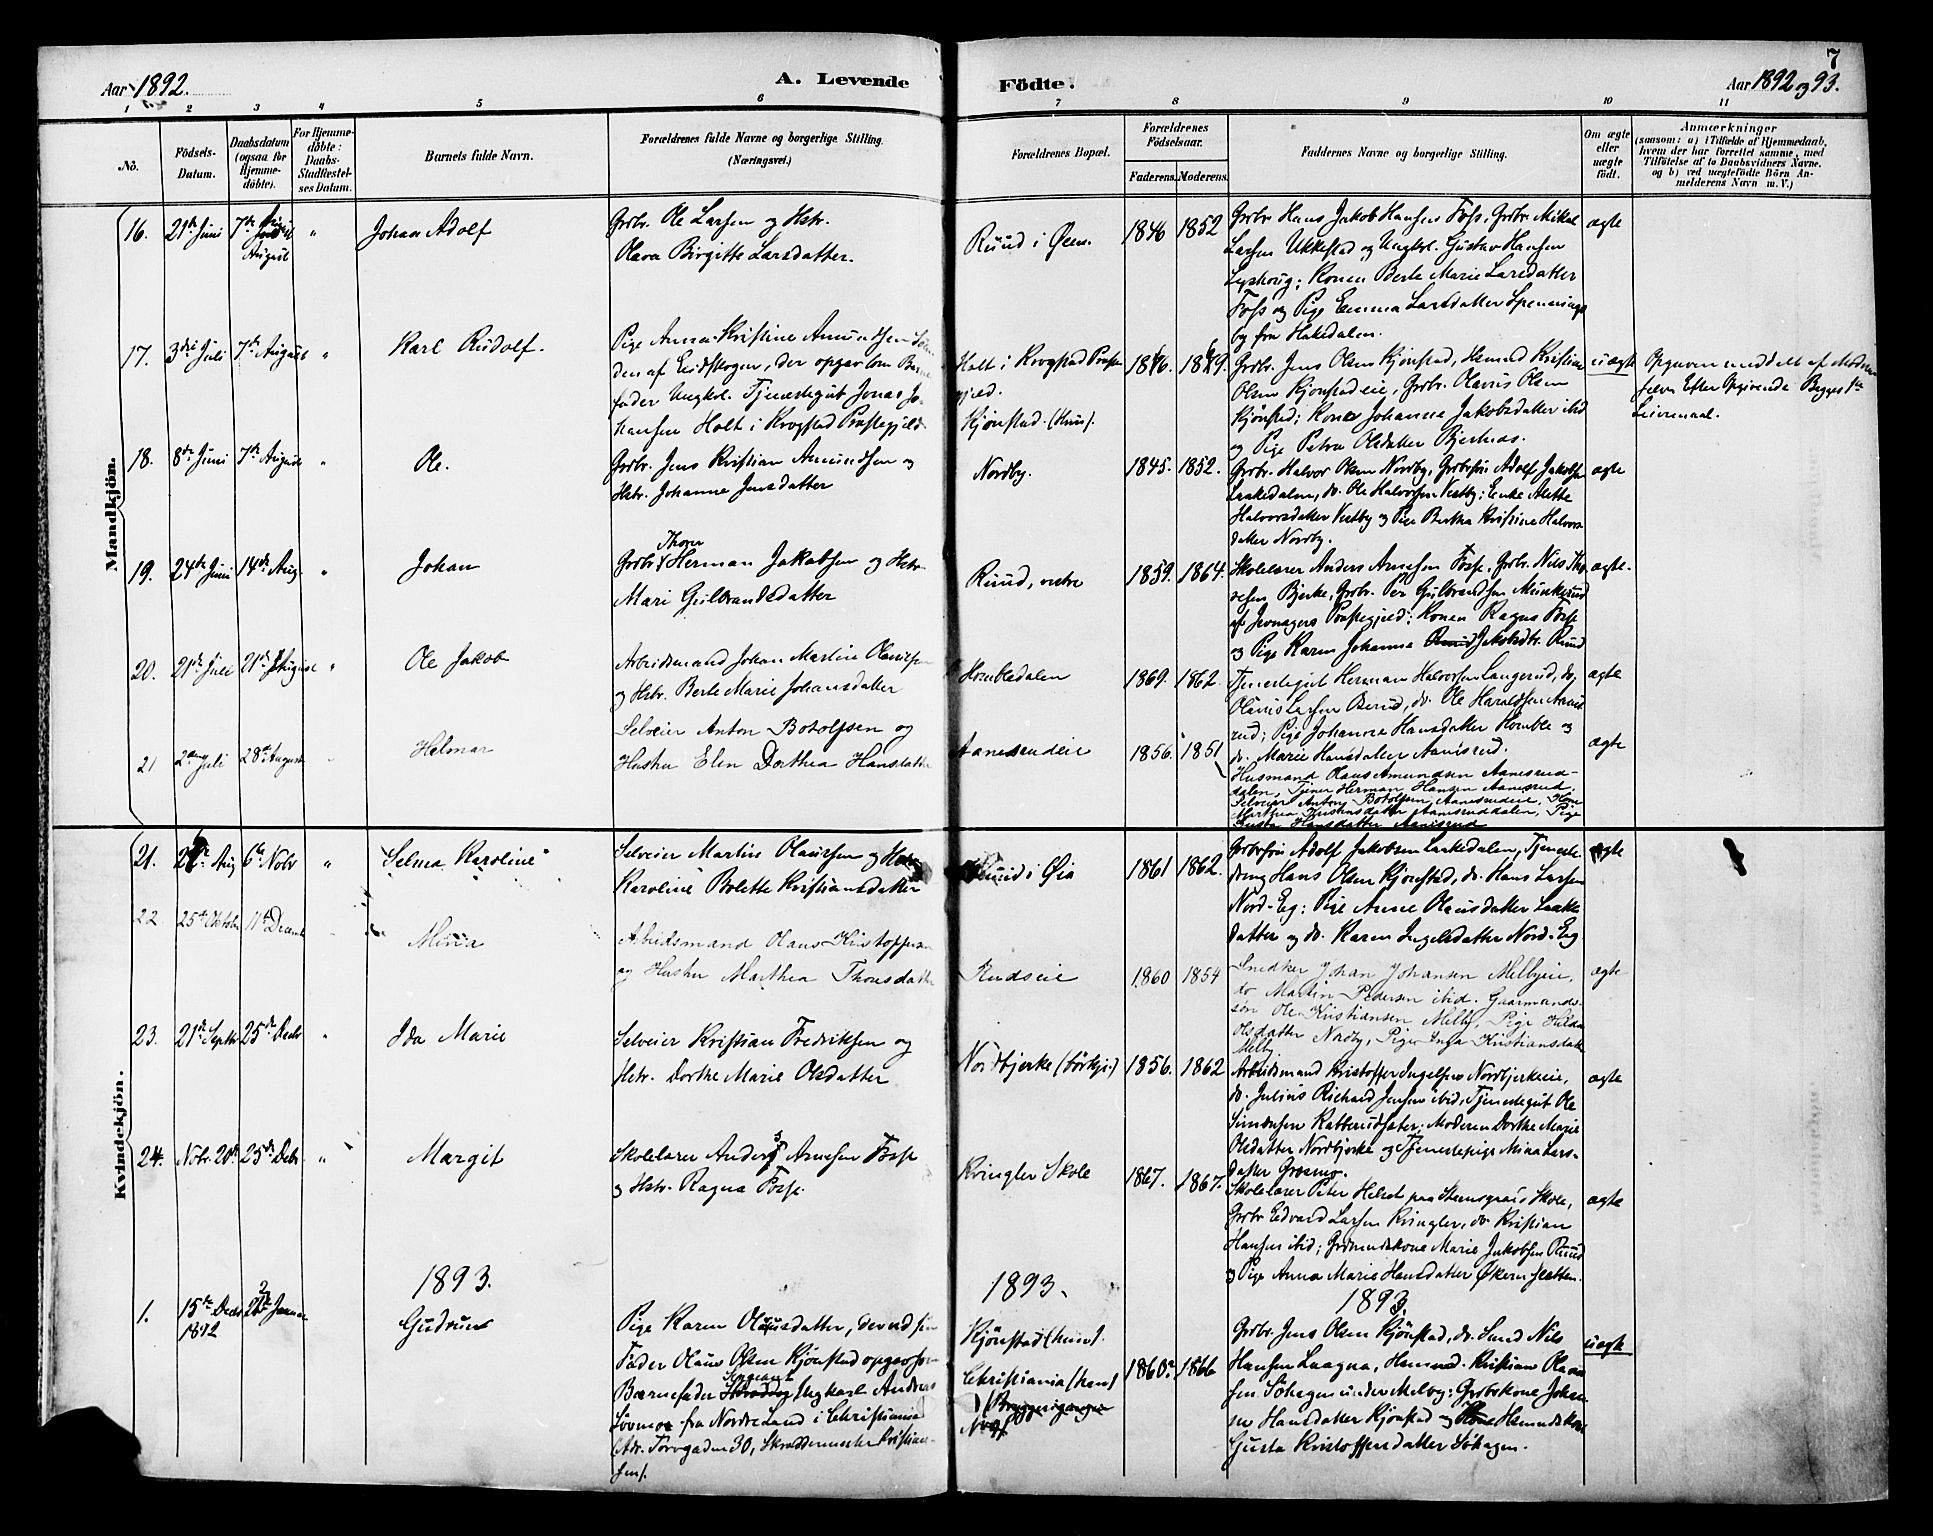 7
Aar 1892.
A. Levende
Födte.
Aar 1892 og 93.
1 2 3 4 5 6 7 8 9 10 11
No.
Födsels-
Datum.
Daabsdatum
(ogsaa for
Hjemme-
döbte).
For Hjemme-
döbte:
Daabs-
Stadfæstel-
ses Datum.
Barnets fulde Navn.
Forældrenes fulde Navne og borgerlige Stilling.
(Næringsvei.)
Forældrenes Bopæl.
Forældrenes
Födselsaar.
Faderens.
Moderens.
Faddernes Navne og borgerlige Stilling.
Om ægte
eller
uægte
födt.
Anmærkninger
(saasom: a) i Tilfælde af Hjemmedaab,
hvem der har forrettet samme, med
Tilföielse af to Daabsvidners Navne.
og b) ved uægtefödte Börn An-
melderens Navn m. V.)
Mandkjön.
16. 21de Juni 7de August "
Johan Adolf
Grdbr. Ole Larsen og Hstr.
Olava Birgitte Larsdatter.
Ruud i Øen.
1846 1852
Grdbr. Hans Jakob Hansen Foss, Grdbr. Mikal
Larsen Ukkestad og Ungkrl. Gustav Hansen
Lyshoug; Konen Berte Marie Larsdatter
Foss og Pige Emma Larsdatter Spennings
by fra Hakedalen.
ægte
17. 3die Juli 7de August "
Karl Rudolf.
Pige Anna Kristine Amundsen
den af Eidskogen, der opgav som Barne
fader Ungkrl. Tjenestegut Jonas Jo-
hansen Holt i Krogstad Præstegjeld
Holt i Krogstad Præste
gjeld.
Kjønstad. (hun).
1846. 1869.
Grdbr. Jens Olsen Kjønstad, Hsmnd Kristian
Olsen Kjønstadeie, Grdbr. Olavus Olsen
Kjønstad; Kone Johanne Jakobsdatter ibid
og Pige Petra Olsdatter Bjerknes.
uægte
Opgaven meddelt af Moderen
selv. Efter Opgivende Begges 1ste
Leiermaal.
18. 8de Juni 7de August "
Ole.
Grdbr. Jens Kristian Amundsen og
Hstr. Johanne Jensdatter
Nordby.
1845. 1852.
Grdbr. Halvor Olsen Nordby, Grdbrsøn Adolf Jakobsen
Laakedalen, do. Ole Halvorsen Vestby; Enke Alette
Halvorsdatter Vestby og Pige Bertha Kristine Halvors
datter Nordby.
ægte
19. 24de Juni 14de Aug. "
Johan
Thorer
Grdbr. Herman Jakobsen og Hstr.
Mari Gulbrandsdatter
Ruud, vestre
1859. 1864.
Skolelærer Anders Arnesen Fosse, Grdbr. Nils Tho
resen Bjerke, Grdbr. Per Gulbrandsen Munkerud
af Jevnagers Præstegjeld; Konen Ragna Fosse
og Pige Karen Johanne Ruud Jakobsdtr. Ruud
ægte.
20. 21de Juli 21de August "
Ole Jakob
Arbeidsmand Johan Martin Olavesen
og Hstr. Berte Marie Johansdatter
Hombledalen
1869. 1862.
Tjenestegut Herman Halvorsen Langerud, do.
Olavus Larsen Berud, do. Ole Haraldsen Aanes
rud; Pige Johanne Hansdatter Homble og
do. Marie Hansdatter Aanesrud.
ægte
21 2den Juli 28de August
Helmar
Selveier Anton Botolfsen og
Hustru Elen Dorthea Hansdatter
Aanesrudeie
1856. 1851
Husmand Olaus Amundsen Aanesrud-
dalen, Tjener Herman Hansen Aanesrud,
Selveier Anton Botolfsen, Aanesrudeie, Kone
Marthea Kristensdatter Aanesruddalen, Pige
Gusta Hansdatter Aanesrud
ægte
Kvindekjön.
21. Aug 6te Nobr "
Selma Karoline
Selveier Martin Olausen og Hstr.
Karoline Bolette Kristiansdatter
Ruud i Øia
1861 1862.
Grdbrsøn Adolf Jakobsen Laakedalen, Tjeneste
dreng Hans Olsen Kjønstad, do. Hans Larsen
Nord-Eg; Pige Anne Olausdatter Laake
datter og do. Karen Ingelsdatter Nord-Eg
ægte
22 25de Oktober 11te Decemb
Mina
Arbeidsmand Olaus Kristoffersen
og Hustru Marthea Thorsdatter
Rudseie
1860 1854
Snedker Johan Johansen Melbyeie,
do Martin Pedersen ibid. Gaarmands-
søn Ole Kristiansen Melby, Pige Hilda
Olsdatter Nordby, Pige Inga Kristiansdatt
Melby
ægte
23. 21de Septbr 25de Decbr "
Ida Marie
Selveier Kristian Fredriksen og
Hstr. Dorthe Marie Olsdatter
Nordbjerke (Sörkje.)
1856. 1862
Arbeidsmand Kristoffer Ingelsen Nordbjerkeeie,
do. Julius Richard Jensen ibid; Tjenestegut Ole
Simensen Ratterudsæter; Moderen Dorthe Marie
Olsdatter Nordbjerke og Tjenestepige Mina Lars-
datter Grasmo.
ægte
24. Nobr. 20de 25de Debr. "
Margit
Skolelærer Anders Arnesen Fosse
og Hstr. Ragna Fosse.
Kringler Skole
1867. 1867.
Skolelærer Peter Helset paa Stensgaards Skole,
Grdbr Edvard Larsen Kringler, do. Kristian
Hansen ibid; Grdmandskone Marie Jakobsen Ruud
og Pige Anna Marie Hansdatter Økern sletten.
ægte
1893. 1893. 1893.
1. 15de Decbr 1892 Januar
Gudrun
Pige Karen Olausdatter, der ved sin
Fader Olaus Olsen Kjønstad opgav som
Barnefader Ungkarl Andreas
Løvmoe fra Nordre Land i Christiania
(Adr. Torvgaden 30, Skræddermester Kristian-
sen).
Kjønstad (hun).
Christiania (han)
1860. 1866
Grdbr. Jens Olsen Kjønstad, do. Lund Nils
Hansen Laagna, Hsmnd. Kristian Olavs
sen Søhagen under Melby; Grdbrskone Johan
ne Hansdatter Kjønstad og Hsmndskone
Gusta Kristoffersdatter Søhagen.
uægte